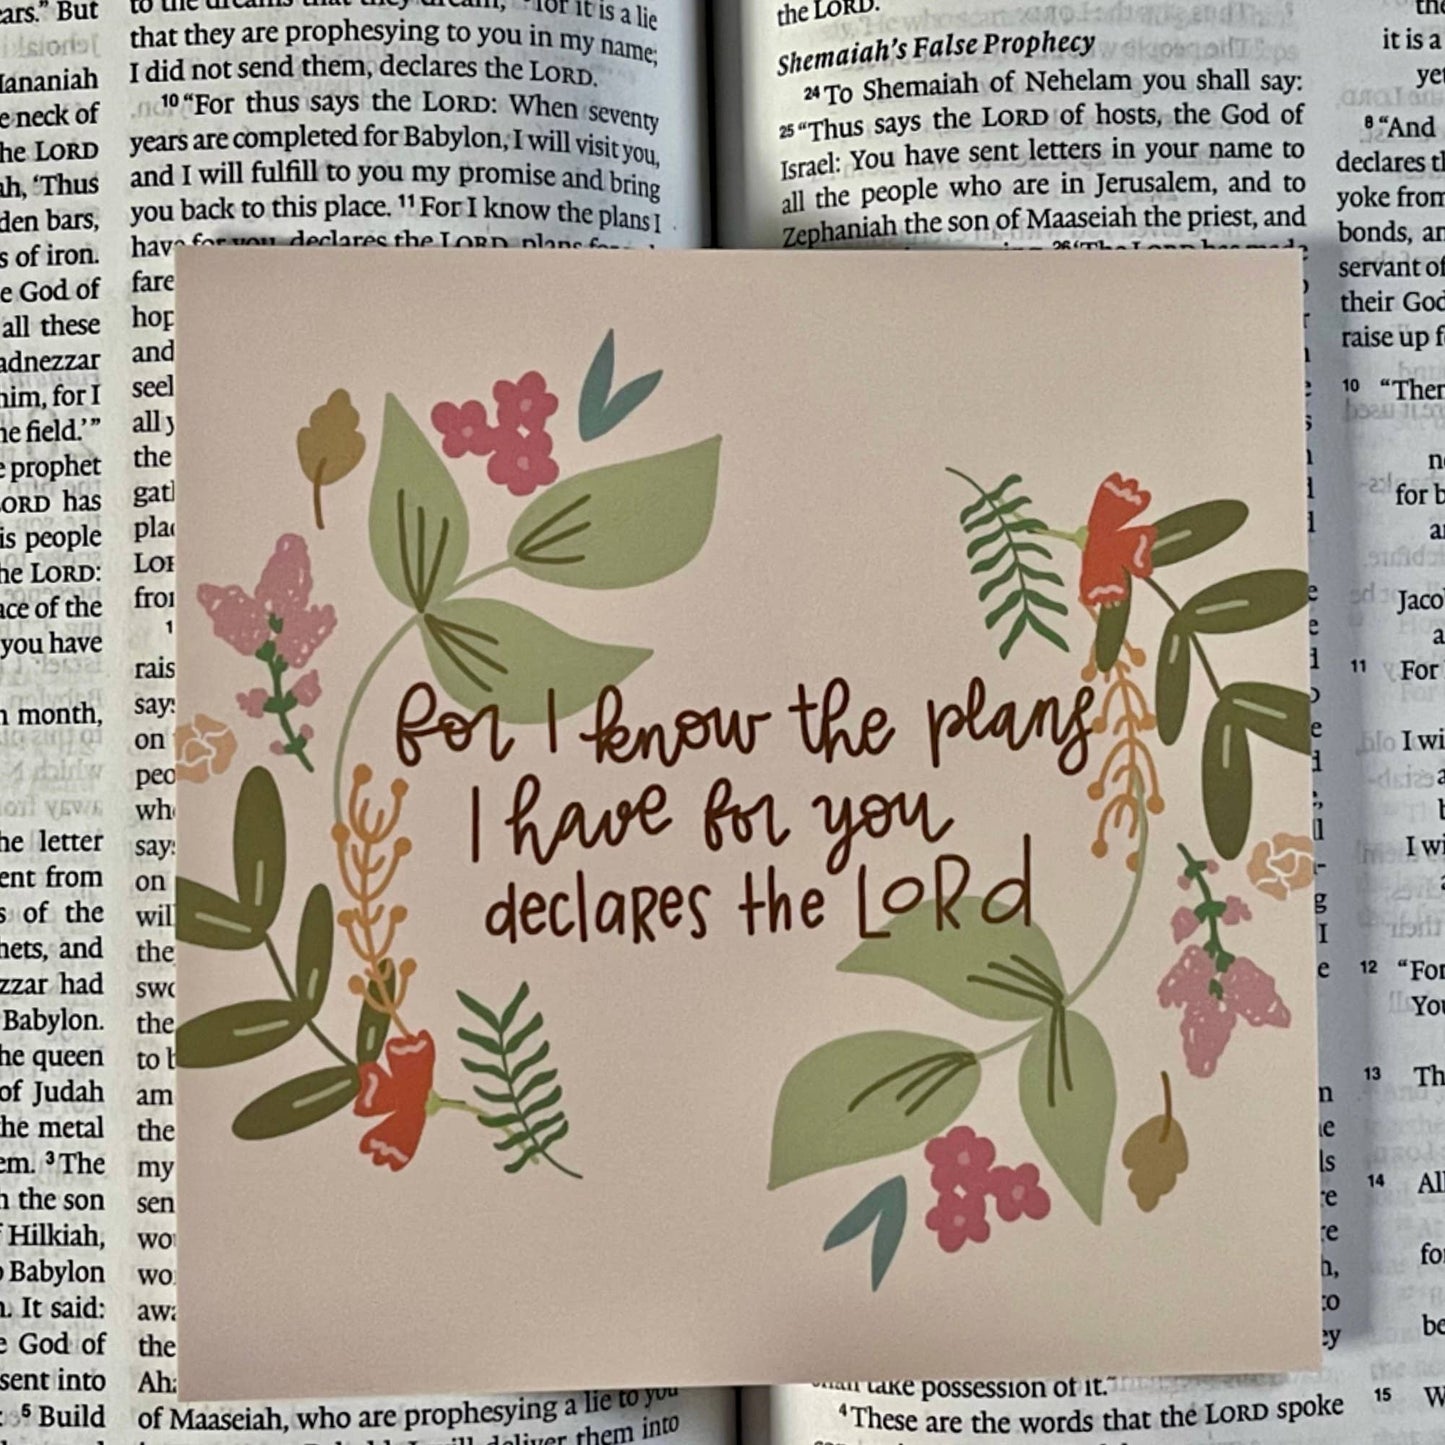 ars." But
Hananiah
e neck of
he LORD
ah, 'Thus
den bars,
s of iron.
e God of
all these
adnezzar
him, for I
he field.'"
e prophet
ORD has
is people
he LORD:
ace of the
you have
month,
he letter
ent from
s of the
hets, and
zzar had
Babylon.
he queen
of Judah
he metal
em. 3 The
the son
Hilkiah,
Babylon
It said:
God of
sent into
5 Build
to the dreams that they dream, 9 for it is a lie
that they are prophesying to you in my name;
I did not send them, declares the LORD.
10 "For thus says the LORD: When seventy
years are completed for Babylon, I will visit you,
and I will fulfill to you my promise and bring
you back to this place. 11 For I know the plans I
have for you, declares the LORD, plans for
fare
hop
and
seel
all y
the
gatl
plac
LOR
from
1
rais
says
on
peo
who
says
on
will
the
swo
the
to b
am
the
my
sen
wo
wo
awa
the
Aha
of Maaseiah, who are prophesying a lie to you
will deliver them into
for I know the plans
I have for you
declares the LORD
the LORD.
Shemaiah's False Prophecy
24 To Shemaiah of Nehelam you shall say:
25 "Thus says the LORD of hosts, the God of
Israel: You have sent letters in your name to
all the people who are in Jerusalem, and to
Zephaniah the son of Maaseiah the priest, and
26 'The LORD has made
take possession of it."
4 These are the words that the LORD spoke
it is a
yet
8 "And
declares th
yoke from
bonds, an
servant of
their God
raise up f
10 "Then
for b
Jaco
11 For
I wi
I wi
12 "For
You
13 Th
14 All
for
be
15 W